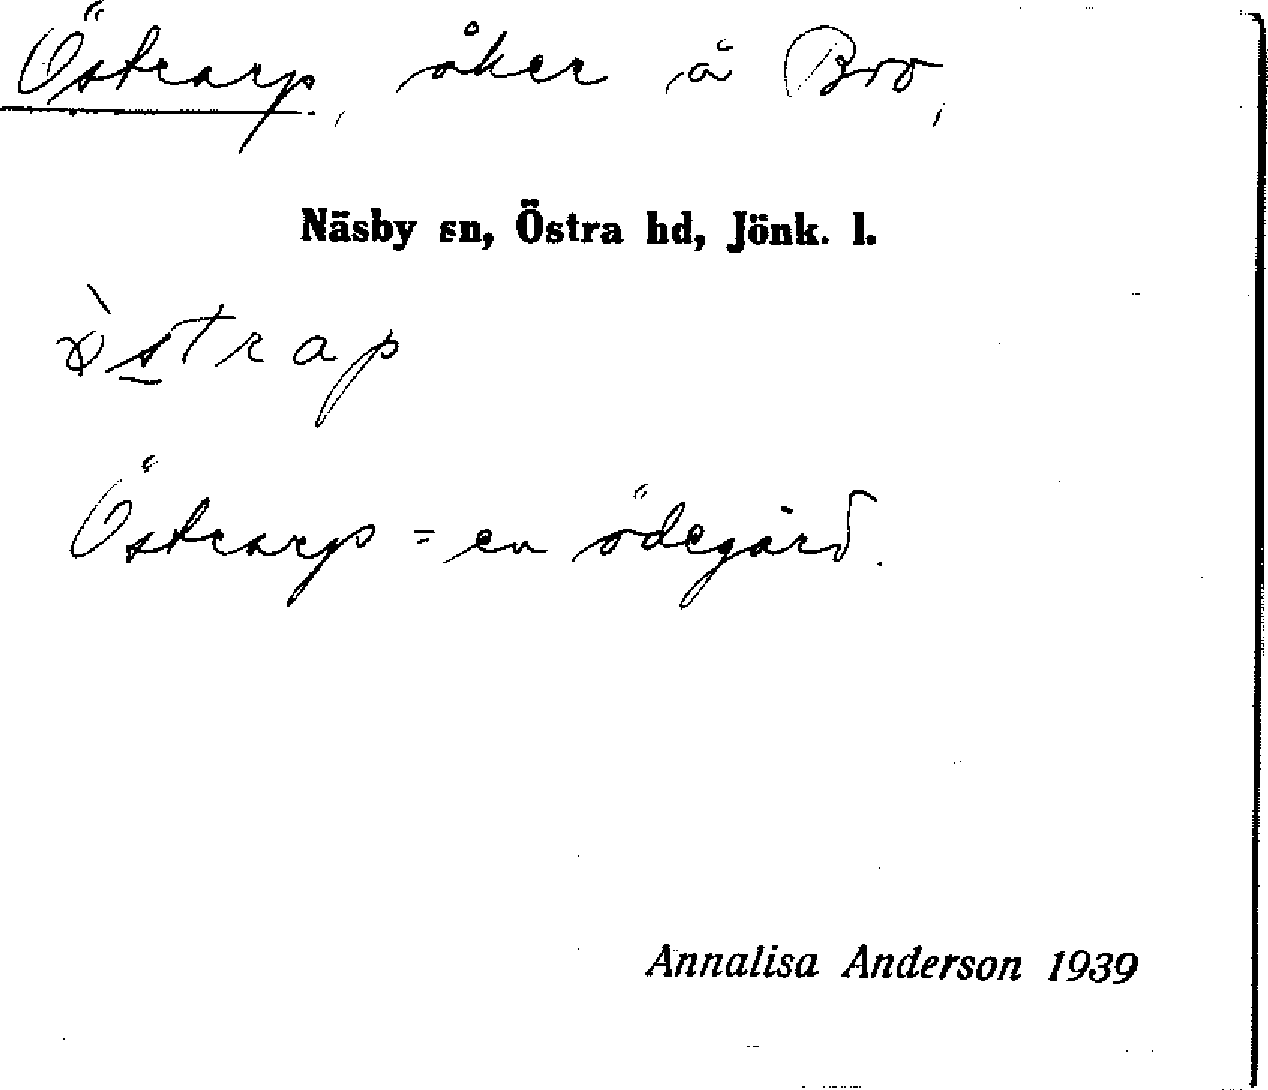 Östrarp, åker å Bro,
Näsby sn, Östra hd, Jönk. l.
ø̀strap
Östrarp = en ödegård.
Annalisa Anderson 1939